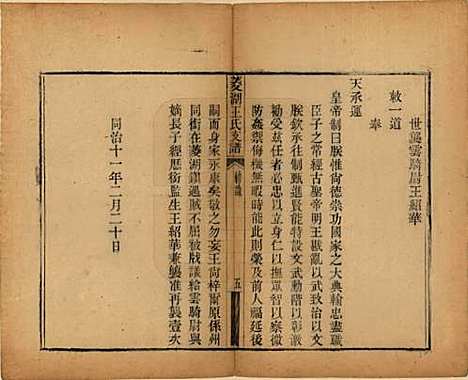 世襲雲騎尉王紹華
敕一道
奉
天承運
皇帝制曰朕惟尚德崇功國家之大典輸忠盡職
臣子之常經古聖帝明王戡亂以武致治以文
朕欽承往制甄進賢能特設文武勳階以彰激
勸受茲任者必忠以立身仁以撫眾智以察微
防姦禦侮機無暇時能此則榮及前人福延後
菱湖王氏支譜
五
嗣而身家永康矣敬之勿妄王尚梓爾原係州
同銜在菱湖鎮遇賊不屈被戕議給雲騎尉與
嫡長子經歷銜監生王紹華兼襲准再襲壹次
同治十一年二月二十日